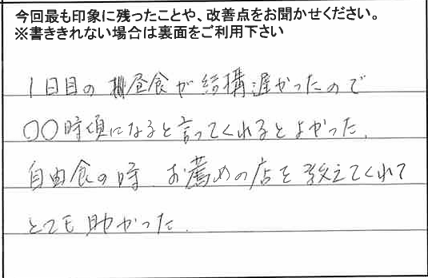 今回最も印象に残ったことや、改善点をお聞かせください。
※書ききれない場合は裏面をご利用下さい
1日目の昼食が結構遅かったので
〇〇時頃になると言ってくれるとよかった。
自由食の時、お薦めの店を教えてくれて
とても助かった。